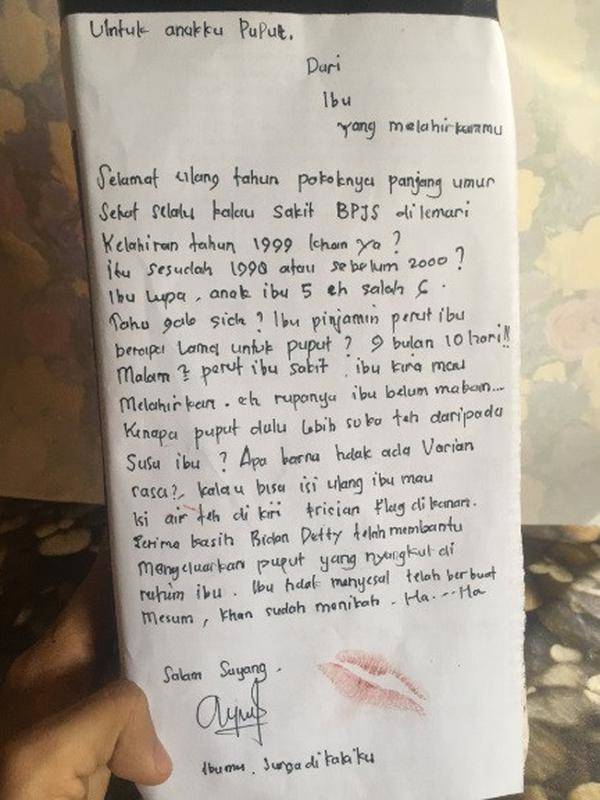 Untuk anakku Puput.
Dari
Ibu
yang melahirkanmu
Selamat ulang tahun pokoknya panjang umur
Sehat selalu kalau sakit BPJS di lemari
Kelahiran tahun 1999 khan ya ?
itu sesudah 1998 atau sebelum 2000 ?
Ibu Lupa, anak ibu 5 eh salah
Tahu gak sich ? Ibu pinjamin perut ibu
berapa Lama untuk puput ? 9 bulan 10 hari!!
Malam 2 perut ibu sakit, ibu kira mau
Melahirkan. eh rupanya ibu belum makan...
Kenapa puput dulu lebih suka teh daripada
Susu ibu ? Apa karna tidak ada Varian
rasa?, kalau bisa isi ulang ibu mau
Isi air teh di kiri frician flag di kanan.
Terima kasih Bidan Detty telah membantu
Mengeluarkan puput yang nyangkut di
rahim ibu. Ibu tidak menyesal telah berbuat
Mesum, khan sudah menikah. Ha...Ha
Salam Sayang.
Ibumu. Surga di kakiku